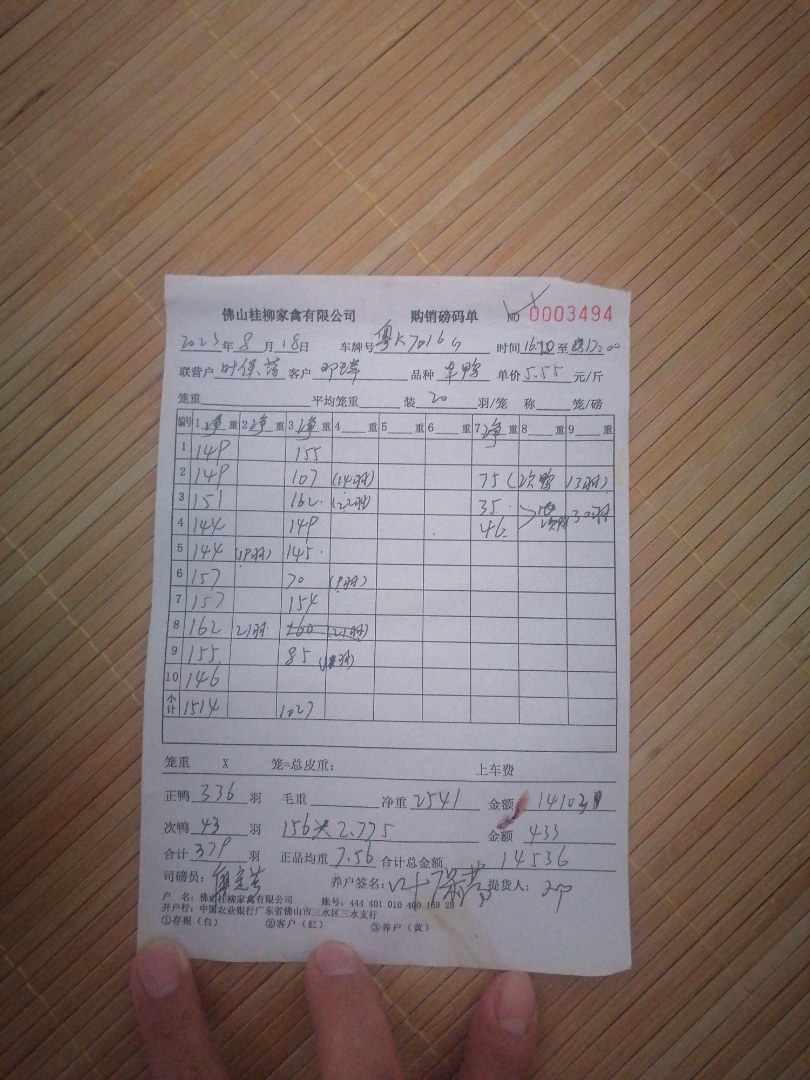 佛山桂柳家禽有限公司 购销磅码单 NO 0003494
2023年8月18日 车牌号 粤K7016G 时间 至 17:00
联营户 叶保芬 客户 邓 品种 单价 5.55 元/斤
笼重 平均笼重 装 20 羽/笼 称 笼/磅
编号 1 净 重 2 净 重 3 净 重 4 重 5 重 6 重 7 净 重 8 重 9 重
1 149 155
2 149 107 (14羽) 75 (次鸭 13羽)
3 151 162 (22羽) 35
4 144 149 46 次鸭 30羽
5 144 (19羽) 145
6 157 70 (9羽)
7 157 154
8 162 21羽 160 (21羽)
9 155 85
10 146
小计 1514 1027
笼重 X 笼=总皮重: 上车费
正鸭 336 羽 毛重 净重 2541 金额 14103
次鸭 43 羽 156×2.775 金额 433
合计 379 羽 正品均重 7.56 合计总金额 14536
司磅员: 养户签名: 叶保芬 提货人: 邓
户 名: 佛山桂柳家禽有限公司 账号: 444 401 010 400 169 29
开户行: 中国农业银行广东省佛山市三水区三水支行
①存根(白) ②客户(红) ③养户(黄)